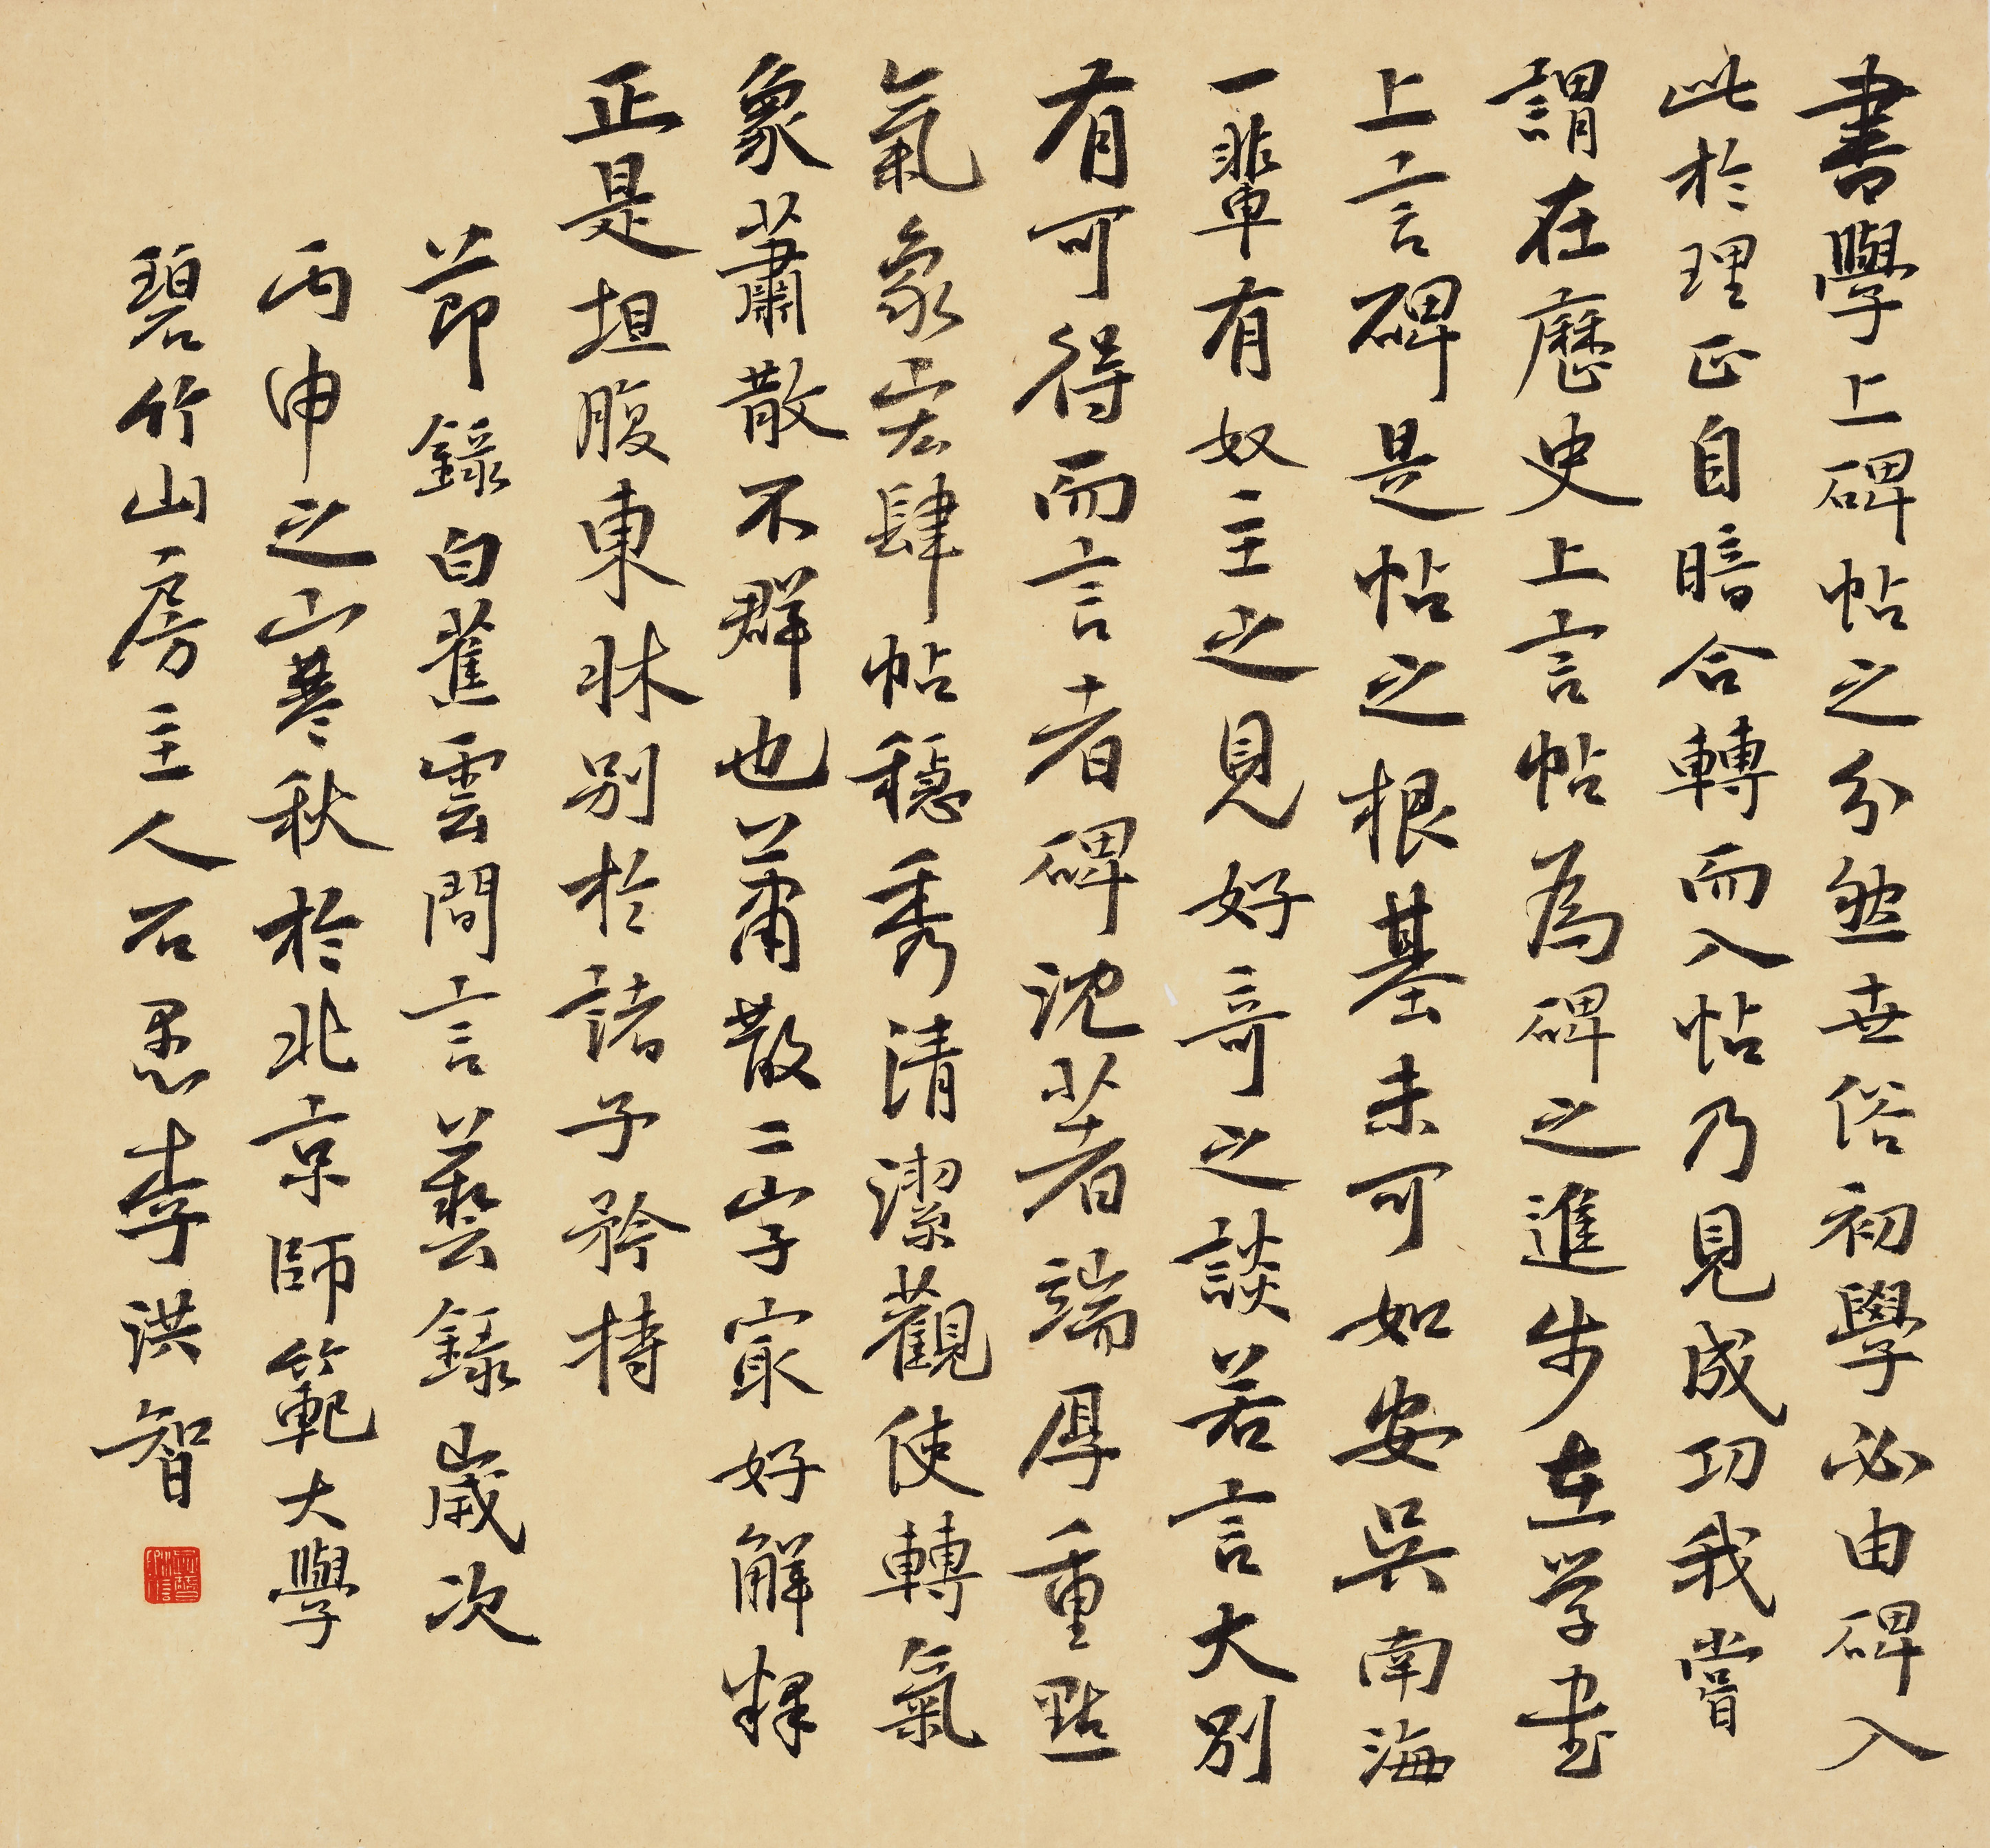 書學上碑帖之分無世俗初學必由碑入
此於理正自暗合轉而入帖乃見成功我嘗
謂在歷史上言帖為碑之進步在学書
上言碑是帖之根基未可如安吳南海
一輩有奴主之見好奇之談若言大別
有可得而言者碑沈著端厚重點
氣象宏肆帖穩秀清潔觀使轉氣
象蕭散不群也蕭散二字最好解釋
正是坦腹東牀別於諸子矜持
節錄白蕉雲間言藝錄歲次
丙申之寒秋於北京師範大學
碧竹山房主人石愚李洪智